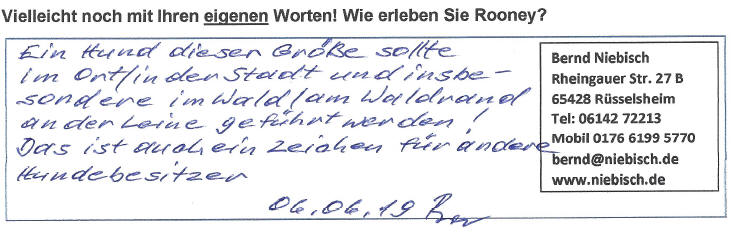 Vielleicht noch mit Ihren eigenen Worten! Wie erleben Sie Rooney?
Ein Hund dieser Größe sollte
im Ort/in der Stadt und insbe-
sondere im Wald/am Waldrand
an der Leine geführt werden!
Das ist auch ein Zeichen für andere
Hundebesitzer
06.06.19
Bernd Niebisch
Rheingauer Str. 27 B
65428 Rüsselsheim
Tel: 06142 72213
Mobil 0176 6199 5770
bernd@niebisch.de
www.niebisch.de